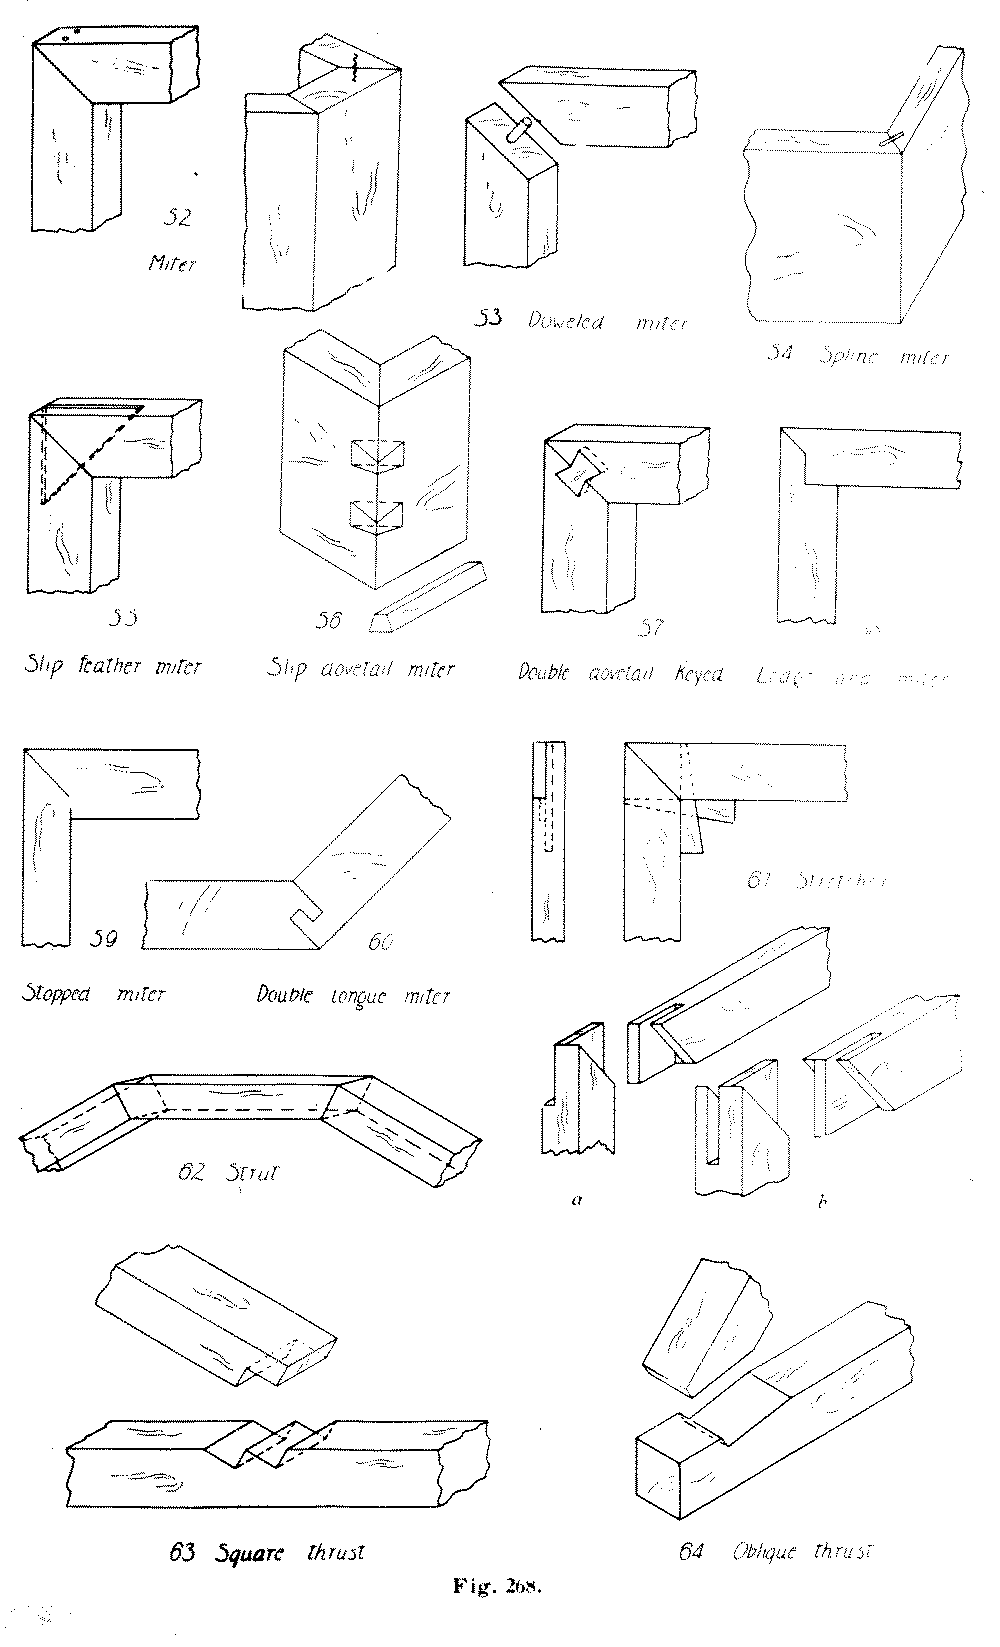 52
Miter
53 Doweled miter
54 Spline miter
55
Slip feather miter
56
Slip dovetail miter
57
Double dovetail Keyed
miter
59
Stopped miter
60
Double tongue miter
61 Stretcher
a
b
62 Strut
63 Square thrust
64 Oblique thrust
Fig. 268.